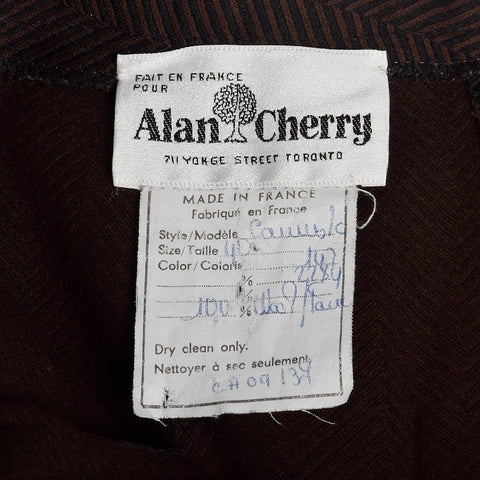 FAIT EN FRANCE
POUR
Alan Cherry
711 YONGE STREET TORONTO
MADE IN FRANCE
Fabriqué en France
Style/Modèle
Size/Taille 40
Color/Coloris 147
% 2284
100 % Wool/Laine
Dry clean only.
Nettoyer à sec seulement.
CA 09 134